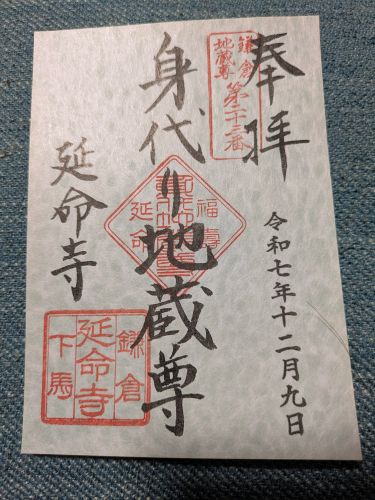 奉拝
鎌倉
地蔵尊
第二十三番
令和七年十二月九日
身代り地蔵尊
福壽
延命
延命寺
鎌倉
延命寺
下馬